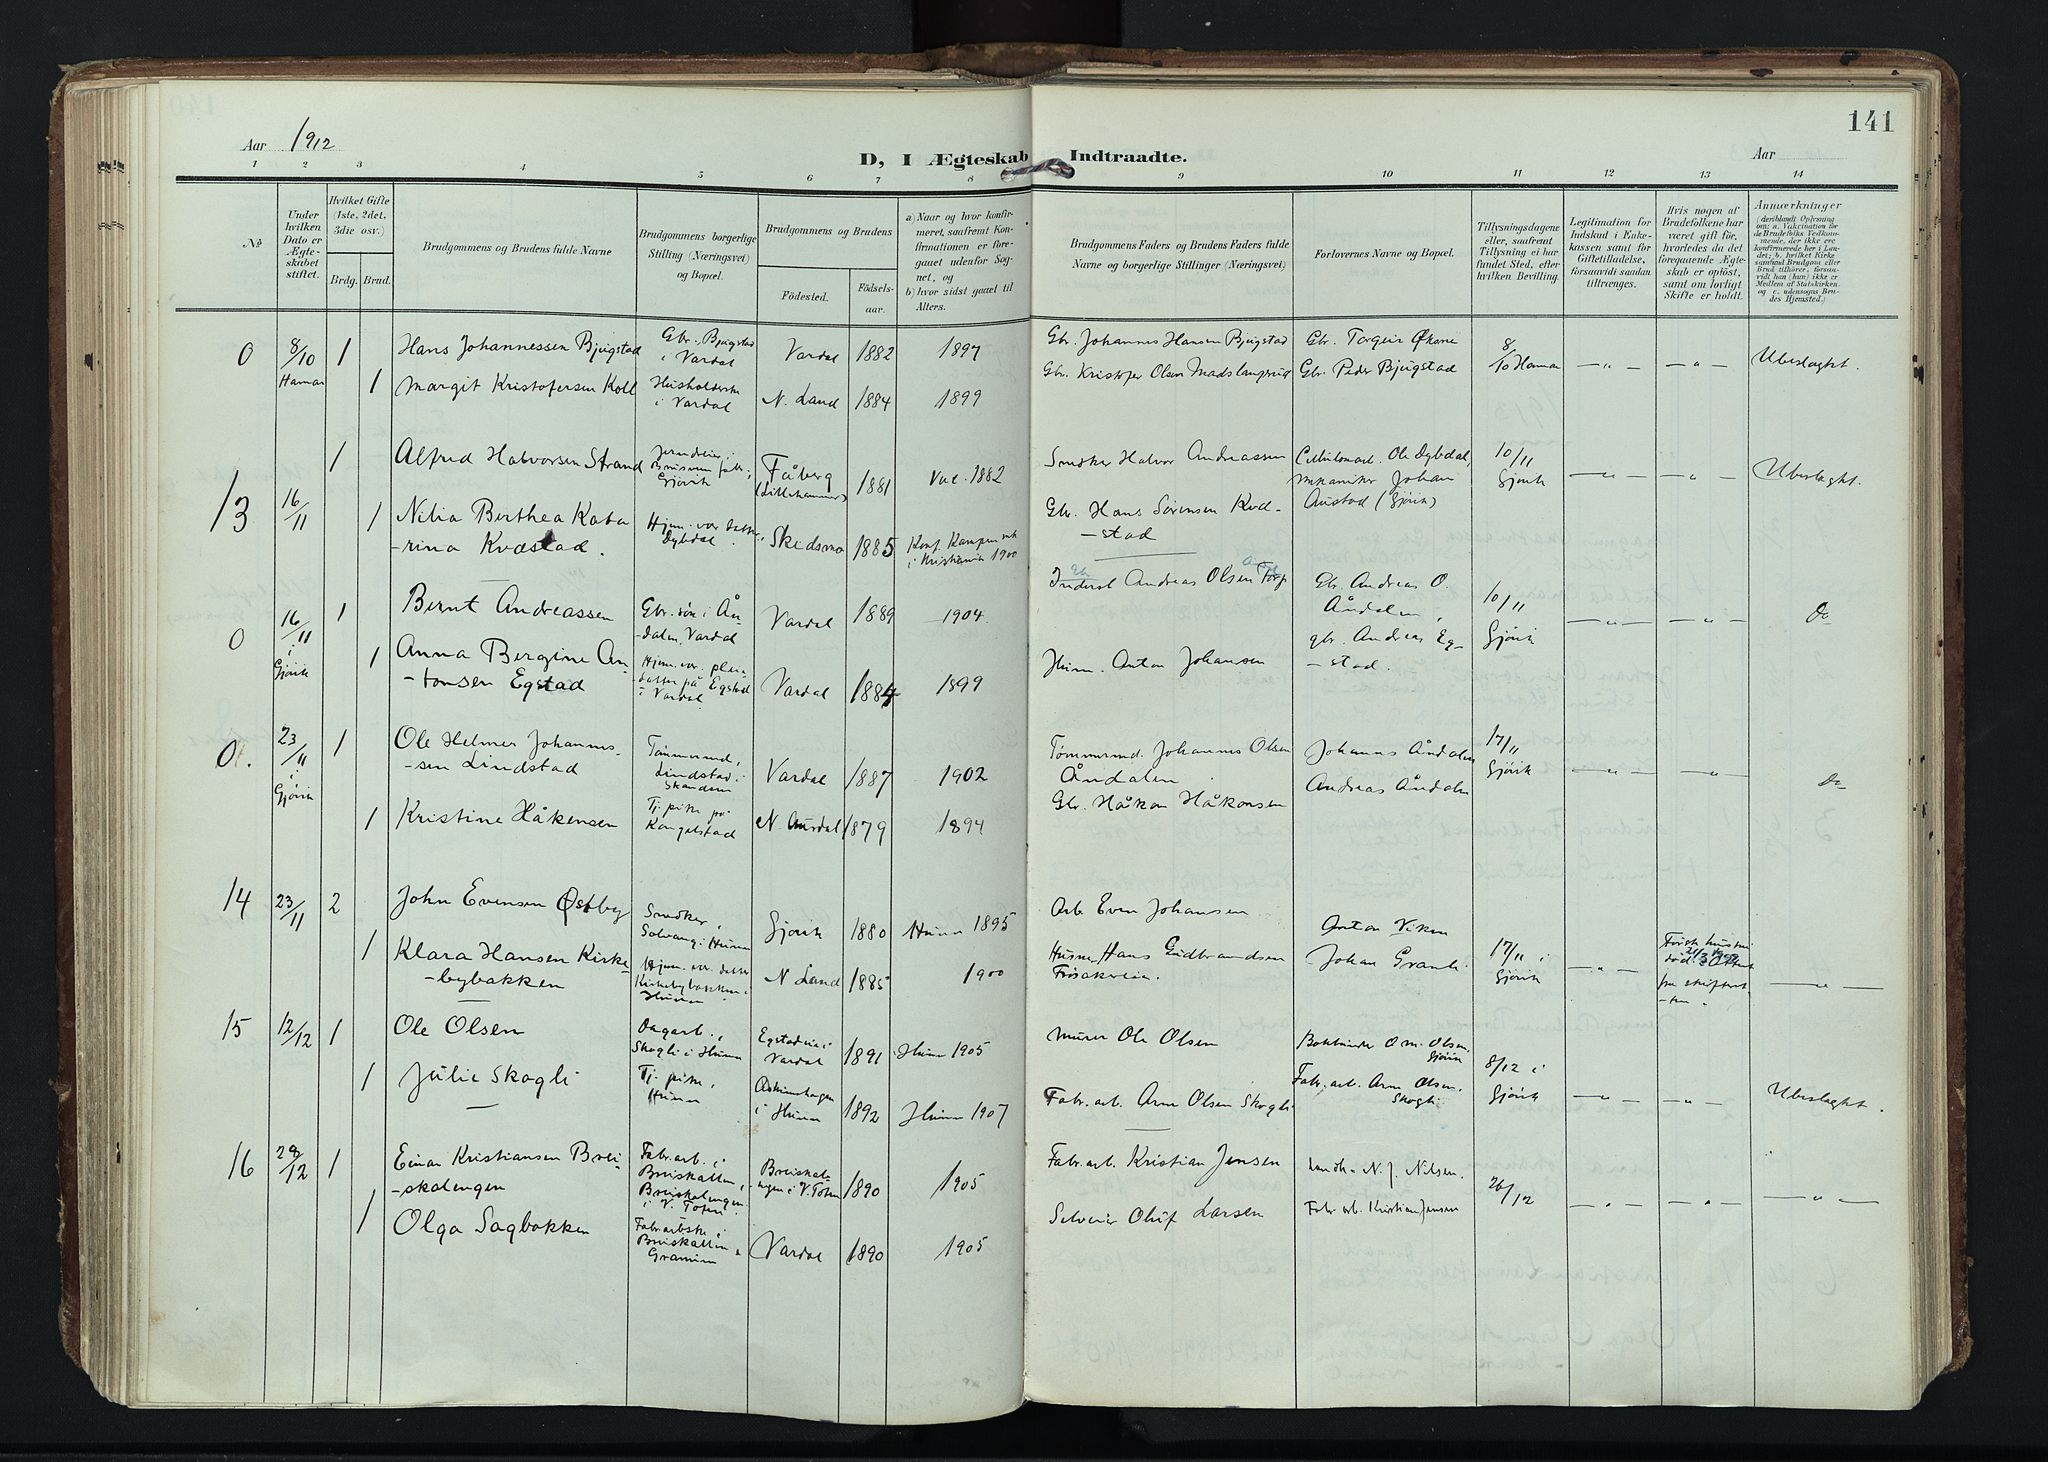 141
Aar 1912
D, I Ægteskab Indtraadte.
Aar
1 2 3 4 5 6 7 8 9 10 11 12 13 14
No
Under hvilken Dato er Ægteskabet stiftet.
Hvilket Gifte (1ste, 2det, 3die osv.)
Brdg. Brud.
Brudgommens og Brudens fulde Navne
Brudgommens borgerlige Stilling (Næringsvei) og Bopæl.
Brudgommens og Brudens
Födested.
Födselsaar.
a) Naar og hvor konfirmeret, saafremt Konfirmationen er foregaaet udenfor Sognet, og
b) hvor sidst gaaet til Alters.
Brudgommens Faders og Brudens Faders fulde Navne og borgerlige Stillinger (Næringsvei)
Forlovernes Navne og Bopæl.
Tillysningsdagene eller, saafremt Tillysning ei har fundet Sted, efter hvilken Bevilling.
Legitimation for Indskud i Enkekassen samt for Giftetilladelse, forsaavidt saadan tiltrænges.
Hvis nogen af Brudefolkene har været gift før, hvorledes da det foregaaende Ægteskab er opløst, samt om lovligt Skifte er holdt.
Anmærkninger
0 8/10 Hamar 1 Hans Johannessen Bjugstad Gbr. Bjugstad i Vardal Vardal 1882 1897 Gbr. Johannes Hansen Bjugstad Gbr. Torgeir Økone 8/10 Hamar — " — — " — Ubeslægtet.
1 Margit Kristofersen Koll Husholderske i Vardal N. Land 1884 1899 Gbr. Kristofer Olsen Madslangrud Gbr. Peder Bjugstad
13 16/11 1 Alfred Halvorsen Strand Gjövik Fåberg (Lillehammer) 1881 Vac. 1882 Snedker Halvor Andreassen Ole Dybdal, mekaniker Johan Austad (Gjövik) 10/11 Gjövik — " — — " — Ubeslægt.
1 Nilia Berthea Katarina Kvæstad. Hjem. vær. datter, Dybdal. Skedsmo 1885 Konf. Kampen kirke i Kristiania 1900 Gbr. Hans Sörensen Kvæ-
-stad
0 16/11 i Gjövik 1 Bernt Andreassen Gbr. sön i Ån-
-dalen, Vardal Vardal 1889 1904 Inderst Andreas Olsen Torp Gbr. Andreas O. Åndalen, 10/11 Gjövik — " — — " — Do
1 Anna Bergine An-
-tonsen Egstad Hjem. vær. pleie-
-datter på Egstad i Vardal Vardal 1884 1899 Husm. Anton Johansen gbr. Andreas Eg-
-stad.
0. 23/11 i Gjövik 1 Ole Helmer Johannes-
-sen Lindstad Tömmermd, Lindstad Vardal 1887 1902 Tømmermd. Johannes Olsen Åndalen Johannes Åndalen 17/11 Gjövik — " — — " — Do
1 Kristine Håkensen Tj. pike på Kongelstad N. Aurdal 1879 1894 Gbr. Håkon Håkonsen Andreas Åndalen
14 23/11 2 John Evensen Østby Snedker, Solvang i Hunn Gjövik 1880 Hunn 1895 Arb. Even Johansen Anton Viken 17/11 i Gjövik — " —
1 Klara Hansen Kirke-
-bybakken Hjem. vær. datter Kirkebybakken i Hunn N. Land 1885 1900 Husm. Hans Gudbrandsen Johan Granli. — " —
15 12/12 1 Ole Olsen Dagarb., Skogli i Hunn Egstadeie i Vardal 1891 Hunn 1905 Murer Ole Olsen Bokbinder O. M. Olsen, Gjövik 8/12 i Gjövik — " — — " — Ubeslægtet.
1 Julie Skogli Tj. pike, Hunn i Hunn 1892 Hunn 1907 Fabr. arb. Arne Olsen Skogli Fabr. arb. Arne Olsen. Skogli
16 28/12 1 Einar Kristiansen Brei-
-skalengen Fabr. arb. i Breiskallen, Breiskalengen i V. Toten Breiskal-
-engen i V. Toten 1890 1905 Fabr. arb. Kristian Jensen Landh. N. J. Nilsen. 26/12 — " — — " — — " —
1 Olga Sagbakken Fabr. arbske i Breiskallen Vardal 1890 1905 Selveier Oluf Larsen Fabr. arb. Kristian Jensen